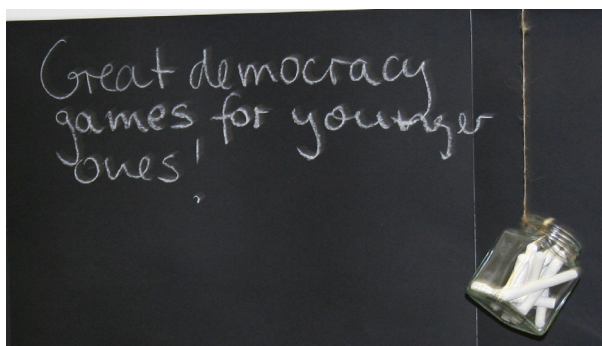 Great democracy
games for younger
ones!